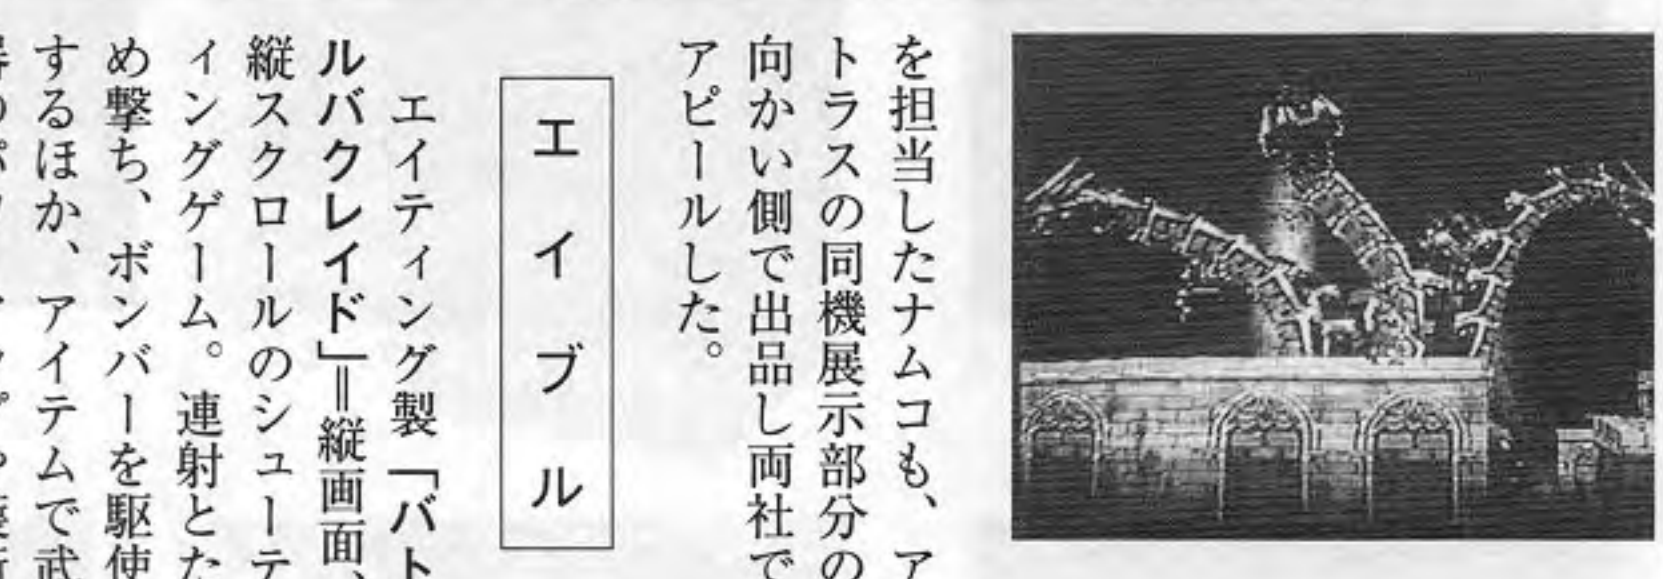 を担当したナムコも、ア
トラスの同機展示部分の
向かい側で出品し両社で
アピールした。
エイブル
エイティング製「バト
ルバクレイド」=縦画面、
縦スクロールのシューテ
ィングゲーム。連射とた
め撃ち、ボンバーを駆使
するほか、アイテムで武